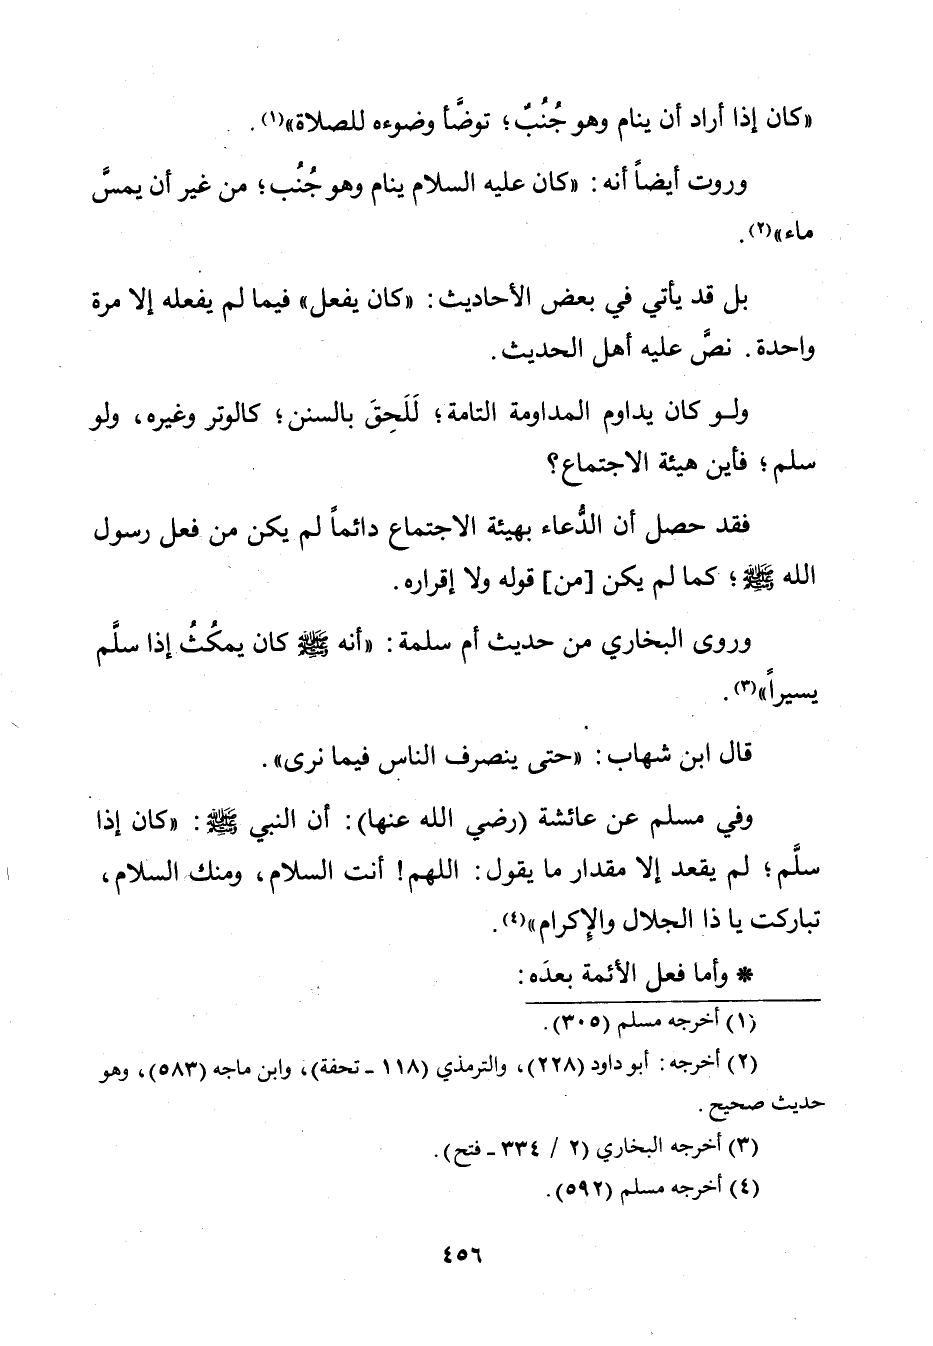 «كان إذا أراد أن ينام وهو جُنُبٌ؛ توضَّأ وضوءه للصلاة»(١).
وروت أيضاً أنه: «كان عليه السلام ينام وهو جُنُب؛ من غير أن يمسَّ
ماء»(٢).
بل قد يأتي في بعض الأحاديث: «كان يفعل» فيما لم يفعله إلا مرة
واحدة. نصَّ عليه أهل الحديث.
ولو كان يداوم المداومة التامة؛ لَلَحِقَ بالسنن؛ كالوتر وغيره، ولو
سلم؛ فأين هيئة الاجتماع؟
فقد حصل أن الدُّعاء بهيئة الاجتماع دائماً لم يكن من فعل رسول
الله ﷺ؛ كما لم يكن [من] قوله ولا إقراره.
وروى البخاري من حديث أم سلمة: «أنه ﷺ كان يمكُثُ إذا سلَّم
يسيراً»(٣).
قال ابن شهاب: «حتى ينصرف الناس فيما نرى».
وفي مسلم عن عائشة (رضي الله عنها): أن النبي ﷺ: «كان إذا
سلَّم؛ لم يقعد إلا مقدار ما يقول: اللهم! أنت السلام، ومنك السلام،
تباركت يا ذا الجلال والإكرام»(٤).
* وأما فعل الأئمة بعدَه:
(١) أخرجه مسلم (٣٠٥).
(٢) أخرجه: أبو داود (٢٢٨)، والترمذي (١١٨ ـ تحفة)، وابن ماجه (٥٨٣)، وهو
حديث صحيح.
(٣) أخرجه البخاري (٢ / ٣٣٤ ـ فتح).
(٤) أخرجه مسلم (٥٩٢).
٤٥٦